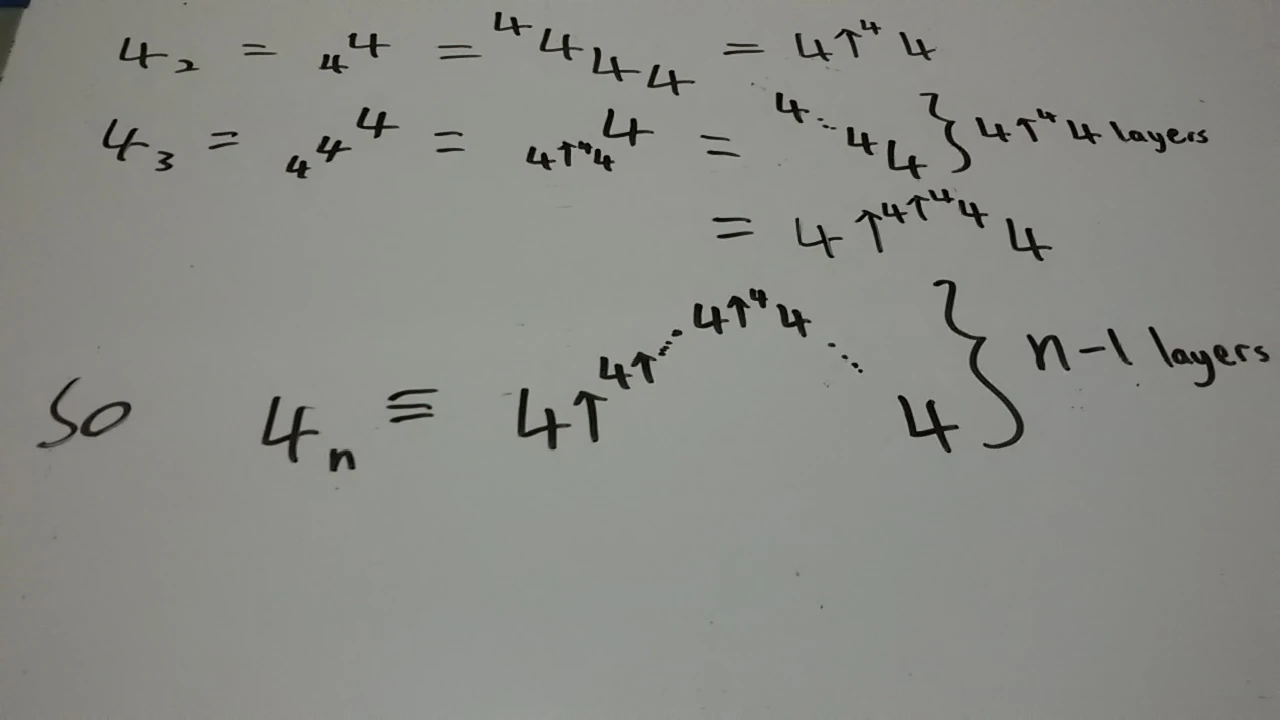 4₂ = ₄4 = ⁴4₄₄ = 4↑⁴4
4₃ = ₄4⁴ = ₄↑⁴₄4 = 4⋱44 } 4↑⁴4 layers
= 4↑^(4↑⁴4) 4
So 4ₙ ≡ 4↑^(4↑^(⋰ 4↑⁴4 ⋱)) 4 } n-1 layers